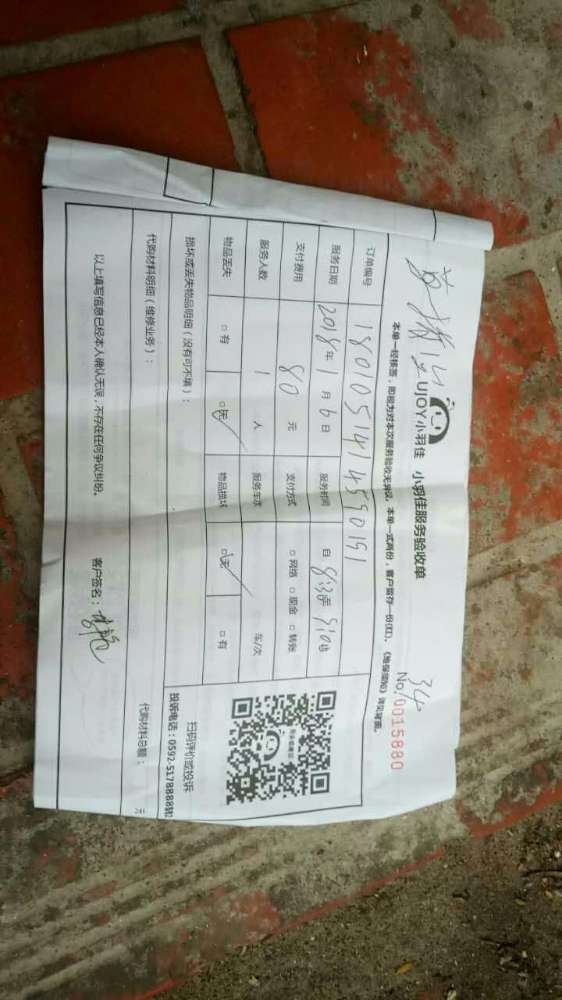 UJOY小羽佳 小羽佳服务验收单
34
No.0015880
本单一经移签，即视为对本次服务验收无异议。本单一式两份，客户留存一份(红)。《地保须知》详见背面。
订单编号 18010514145590191
服务日期 2018年1月6日 服务时间 自
支付费用 80 元 支付方式 □网络 □现金 □转账
服务人数 1 人 服务车次 车/次
物品丢失 □有 □无 物品损坏 □无 □有
损坏或丢失物品明细（没有可不填）：
扫码评价或投诉
投诉电话：0592-5178888转
代购材料明细（维修业务）： 代购材料总额：
以上填写信息已经本人确认无误，不存在任何争议纠纷。 客户签名：